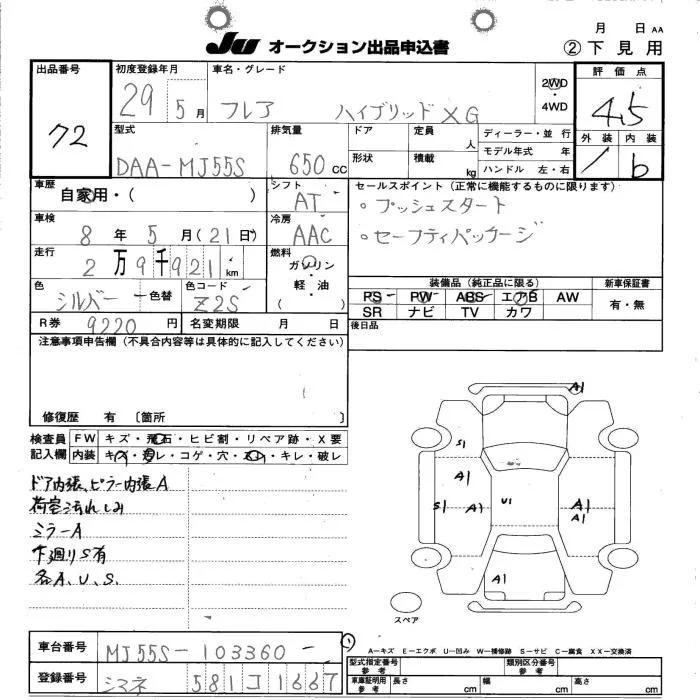 月 日 AA
JU オークション出品申込書
② 下見用
出品番号
72
初度登録年月
29 5月
車名・グレード
フレア ハイブリッドXG
2WD・
4WD
評価点
4.5
外装 内装
1 b
型式
DAA-MJ55S
排気量
650 CC
ドア
形状
定員 人
積載 kg
ディーラー・並行
モデル年式 年
ハンドル 左・右
車歴
自家用・( )
シフト
AT
セールスポイント(正常に機能するものに限ります)
。プッシュスタート
。セーフティパッケージ
車検
8 年 5 月(21日)
冷房
AAC
走行
2万9千921 km
燃料
ガソリン
軽・油
( )
色
シルバー 色替
色コード
Z2S
装備品(純正品に限る)
PS PW ABS エアB AW
SR ナビ TV カワ
新車保証書
有・無
R券 9220 円
名変期限 月 日
後日品
注意事項申告欄(不具合内容等は具体的に記入してください)
修復歴 有 〔箇所 〕
検査員
記入欄
FW キズ・飛石・ヒビ割・リペア跡・X要
内装 キズ・汚レ・コゲ・穴・ヌレ・キレ・破レ
ドア内張、ピラー内張A
荷室汚れしみ
ミラーA
下廻りS有
各A.U.S.
A1
S1
A1
S1 A1
U1
A1
A1
A1
スペア
A-キズ E-エクボ U-凹み W-補修跡 S-サビ C-腐食 XX-交換済
車台番号
MJ55S-103360
①
登録番号
シマネ 581 コ 1667
型式指定番号
参考
類別区分番号
参考
車庫証明用
参考
長さ cm
幅 cm
高さ cm